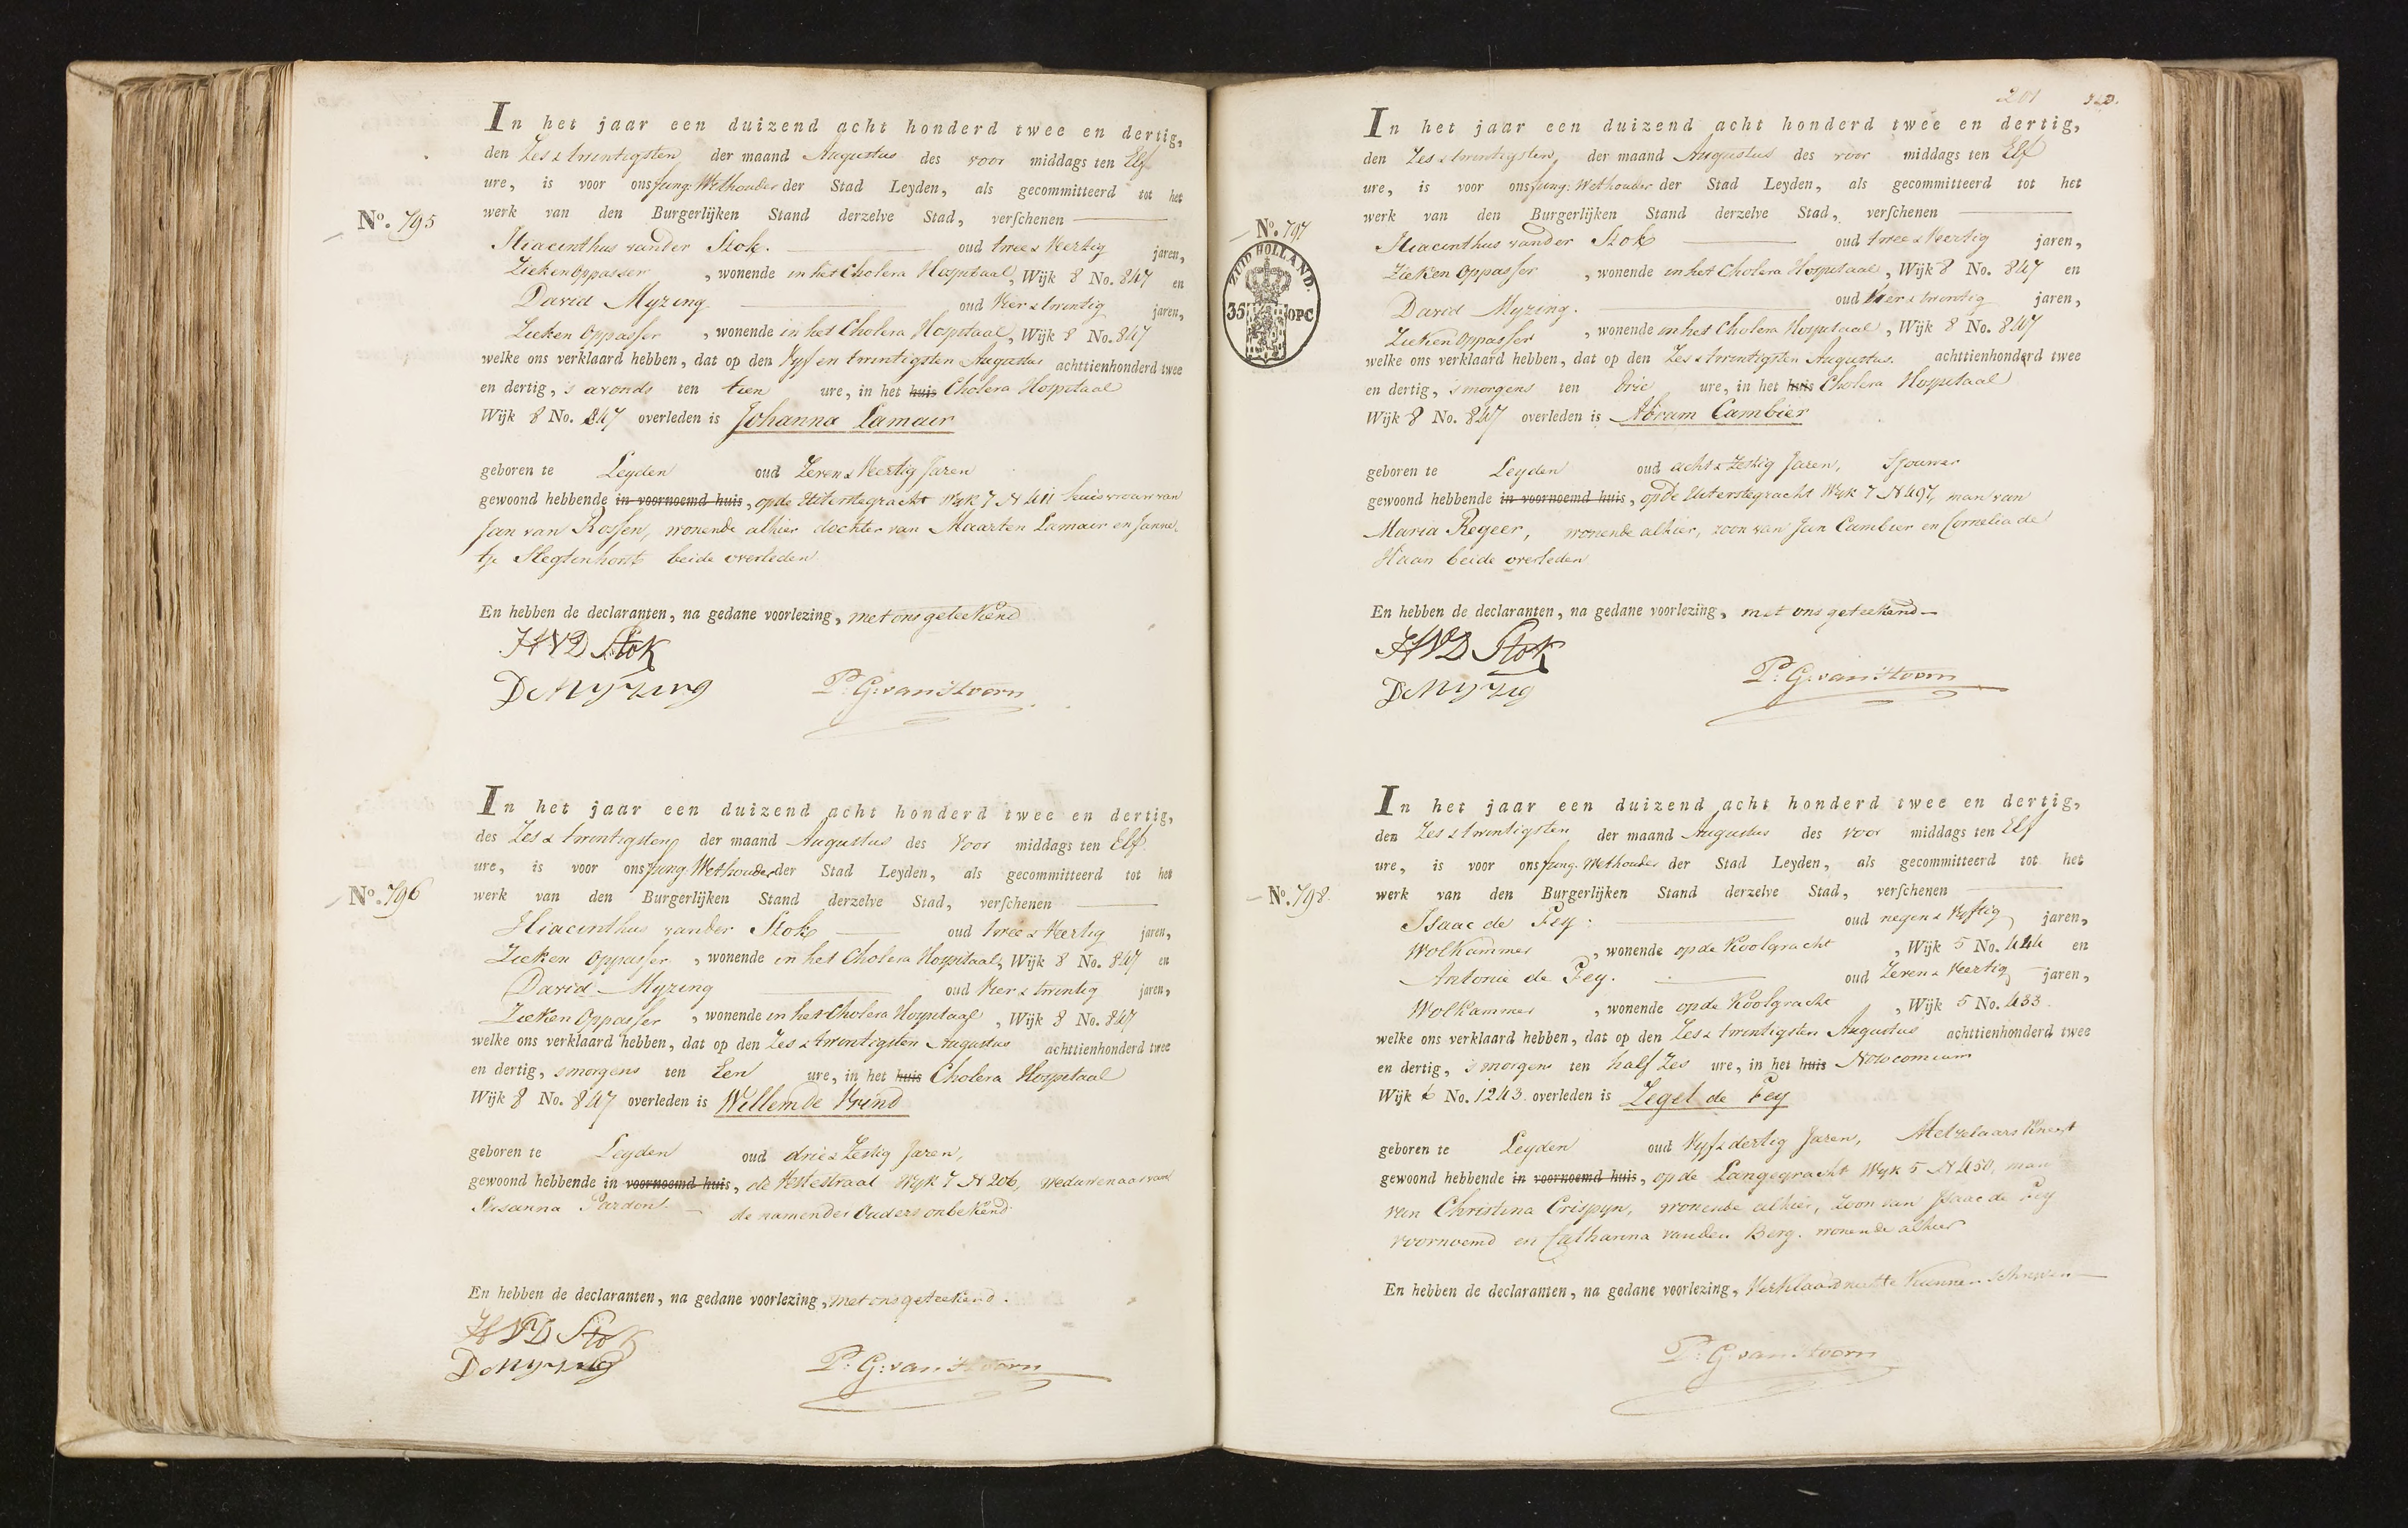 In het jaar een duizend acht honderd twee en dertig,
den Zes & twintigsten der maand Augustus des voor middags ten Elf
ure, is voor ons fung: Wethouder der Stad Leyden, als gecommitteerd tot het
werk van den Burgerlijken Stand derzelve Stad, verschenen
No. 795
Hiacinthus vander Stok. oud twee & Veertig jaren,
Ziekenoppasser, wonende in het Cholera Hospitaal, Wijk 8 No. 847 en
David Myzing oud Vier & twintig jaren,
Zieken Oppasser, wonende in het Cholera Hospitaal, Wijk 8 No. 847
welke ons verklaard hebben, dat op den Vyf en twintigsten Augustus achttienhonderd twee
en dertig, 's avonds ten tien ure, in het huis Cholera Hospitaal
Wijk 8 No. 847 overleden is Johanna Lamair
geboren te Leyden oud Zeven & Veertig Jaren
gewoond hebbende in voornoemd huis, op de Uiterstegracht Wyk 7 N 411 huisvrouw van
Jan van Rossen, wonende alhier dochter van Maarten Lamair en Janne
tje Slegtenhorst beide overleden
En hebben de declaranten, na gedane voorlezing, met ons geteekend
HVD Stok
D Myzing P: G: van Hoorn
In het jaar een duizend acht honderd twee en dertig,
des Zes & twintigsten der maand Augustus des Voor middags ten Elf
ure, is voor ons fung: Wethouder der Stad Leyden, als gecommitteerd tot het
No. 796 werk van den Burgerlijken Stand derzelve Stad, verschenen
Hiacinthus vander Stok oud twee & Veertig jaren,
Zieken Oppasser, wonende in het Cholera Hospitaal, Wijk 8 No. 847 en
David Myzing oud Vier & twintig jaren,
Zieken Oppasser, wonende in het Cholera Hospitaal, Wijk 8 No. 847
welke ons verklaard hebben, dat op den Zes & twintigsten Augustus achttienhonderd twee
en dertig, smorgens ten Een ure, in het huis Cholera Hospitaal
Wijk 8 No. 847 overleden is Willem de Vrind
geboren te Leyden oud drie & Zestig Jaren,
gewoond hebbende in voornoemd huis, de Vestestraat Wyk 7 N 206, weduwenaar van
Susanna Pardon de namen der Ouders onbekend
En hebben de declaranten, na gedane voorlezing, met ons geteekend.
HVD Stok
D Myzing P: G: van Hoorn
201
In het jaar een duizend acht honderd twee en dertig,
den Zes & twintigsten, der maand Augustus des voor middags ten Elf
ure, is voor ons fung: Wethouder der Stad Leyden, als gecommitteerd tot het
werk van den Burgerlijken Stand derzelve Stad, verschenen
No. 797
ZUID HOLLAND.
35 OPC
Hiacinthus vander Stok oud twee & Veertig jaren,
Zieken Oppasser, wonende in het Cholera Hospitaal, Wijk 8 No. 847 en
David Myzing. oud Vier & twintig jaren,
Zieken Oppasser, wonende in het Cholera Hospitaal, Wijk 8 No. 847
welke ons verklaard hebben, dat op den Zes & twintigsten Augustus. achttienhonderd twee
en dertig, 's morgens ten Drie ure, in het huis Cholera Hospitaal
Wijk 8 No. 847 overleden is Abram Cambier
geboren te Leyden oud acht & Zestig Jaren, Sjouwer
gewoond hebbende in voornoemd huis, op de Uiterstegracht Wyk 7 N 497, man van
Maria Regeer, wonende alhier, zoon van Jan Cambier en Cornelia de
Haan beide overleden
En hebben de declaranten, na gedane voorlezing, met ons geteekend
HVD Stok
D Myzig P: G: van Hoorn
In het jaar een duizend acht honderd twee en dertig,
den Zes & twintigsten der maand Augustus des voor middags ten Elf
ure, is voor ons fung: Wethouder der Stad Leyden, als gecommitteerd tot het
No. 798. werk van den Burgerlijken Stand derzelve Stad, verschenen
Isaac de Fey. oud negen & Vyftig jaren,
Wolkammer, wonende op de Koolgracht, Wijk 5 No. 424 en
Antonie de Fey. oud Zeven & Veertig jaren,
Wolkammer, wonende op de Koolgracht, Wijk 5 No. 433
welke ons verklaard hebben, dat op den Zes & twintigsten Augustus achttienhonderd twee
en dertig, 's morgens ten half Zes ure, in het huis Nosocomium
Wijk 6 No. 1243 overleden is Zegel de Fey
geboren te Leyden oud Vyf & dertig Jaren, Metzelaars Knegt
gewoond hebbende in voornoemd huis, op de Langegracht Wyk 5 N 450, man
van Christina Crispyn, wonende alhier, zoon van Isaac de Fey
voornoemd en Catharina vanden Berg. wonende alhier
En hebben de declaranten, na gedane voorlezing, Verklaard niet te kunnen schryven
P: G: van Hoorn